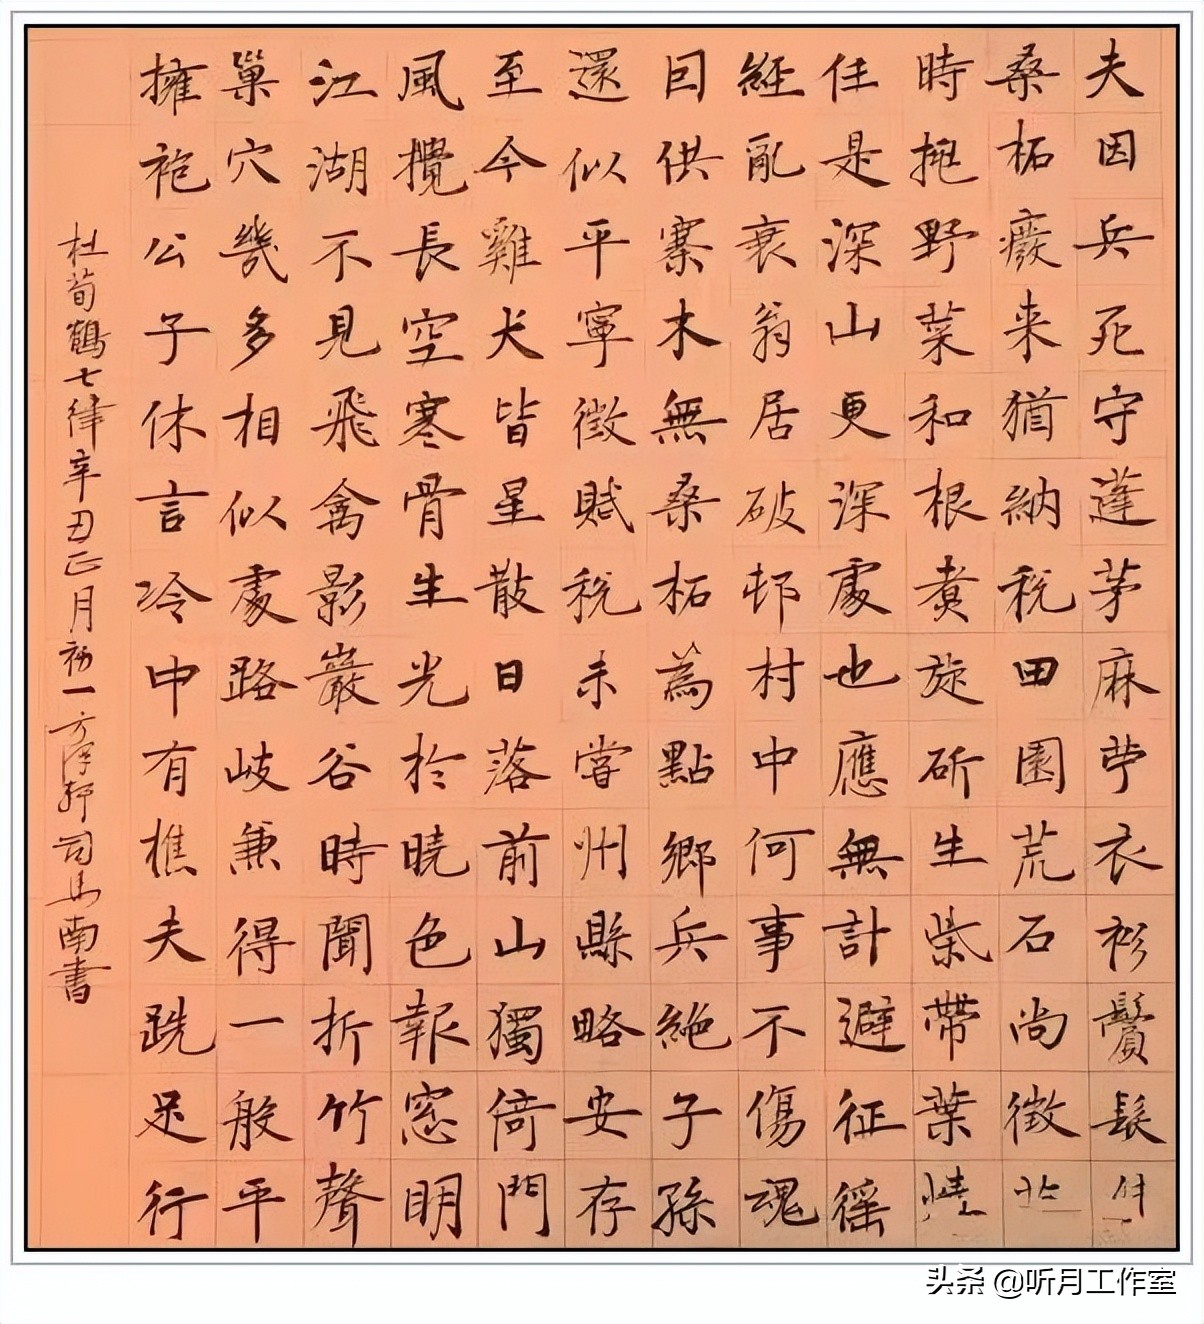 夫因兵死守蓬茅麻苧衣衫鬢髮
桑柘廢来猶納税田園荒石尚徵
時挑野菜和根煮旋斫生柴帶葉燒
任是深山更深處也應無計避征徭
經亂衰翁居破邨村中何事不傷魂
因供寨木無桑柘為點鄉兵絶子孫
還似平寧徵賦税未嘗州縣略安存
至今雞犬皆星散日落前山獨倚門
風攪長空寒骨生光於曉色報窓明
江湖不見飛禽影巖谷時聞折竹聲
巢穴幾多相似處路岐兼得一般平
擁袍公子休言冷中有樵夫跣足行
杜荀鶴七律辛丑正月初一方司馬南書
头条 @听月工作室